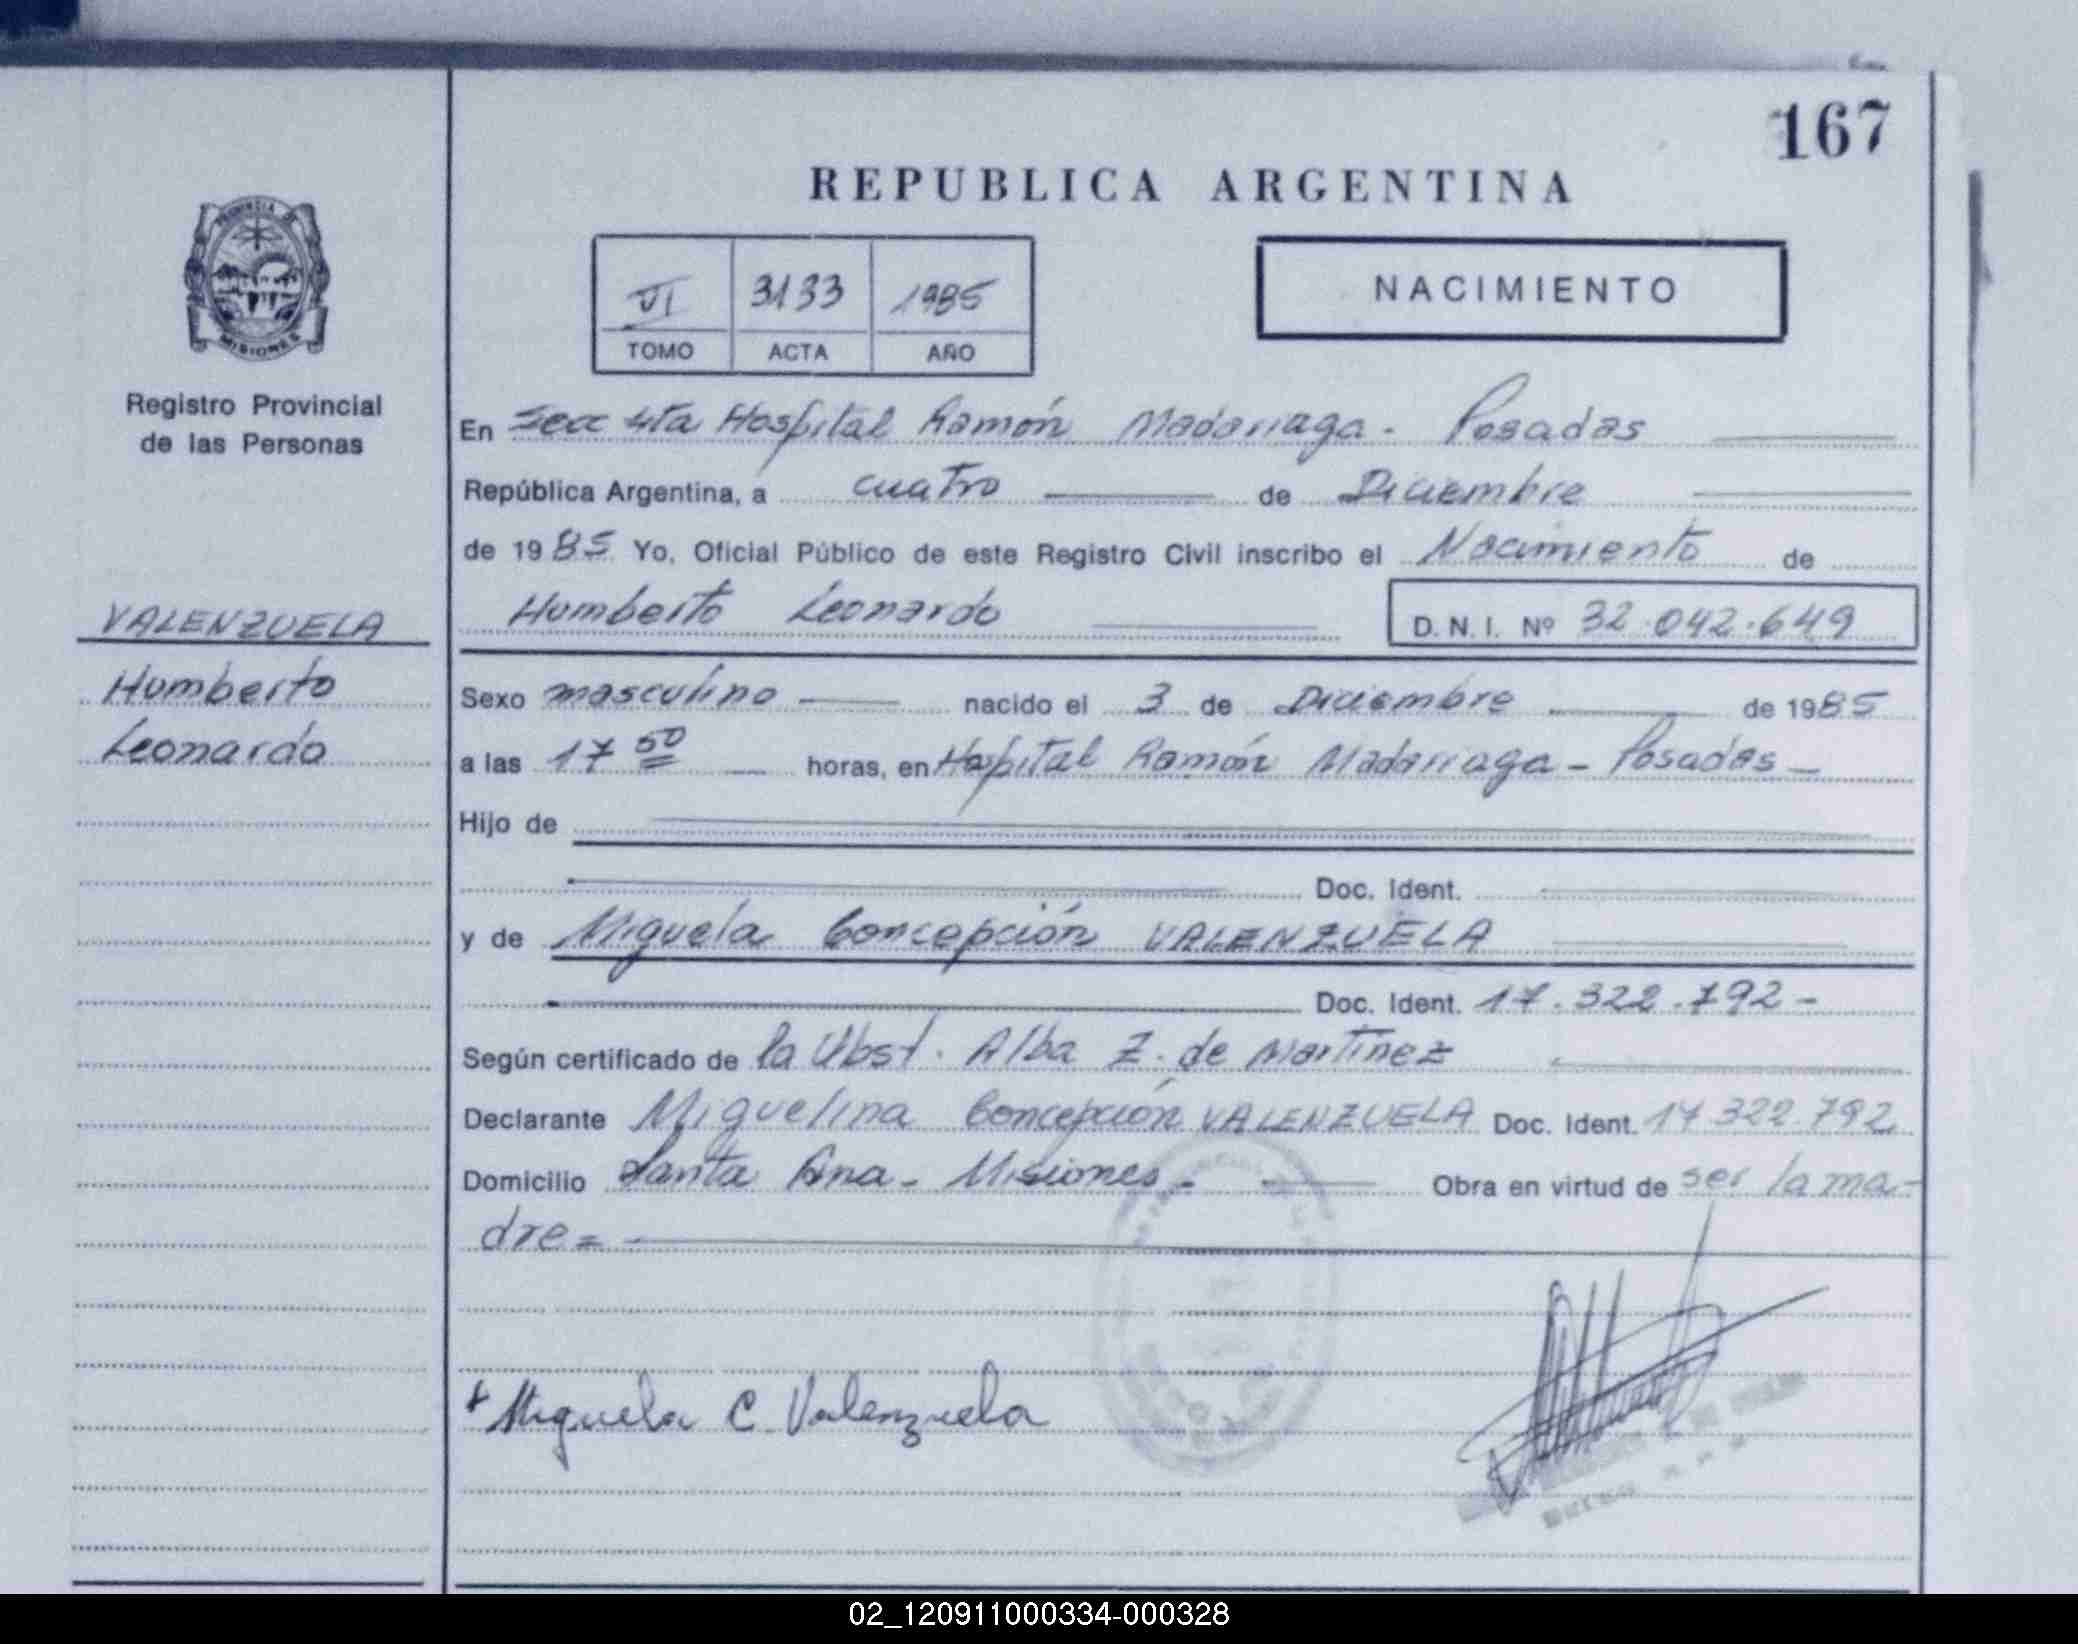 167
REPUBLICA ARGENTINA
PROVINCIA DE
MISIONES
Registro Provincial
de las Personas
VI 3133 1985
TOMO ACTA AÑO
NACIMIENTO
En Secc 4ta Hospital Ramón Madariaga - Posadas
República Argentina, a cuatro de Diciembre
de 1985 Yo, Oficial Público de este Registro Civil inscribo el Nacimiento de
Humberto Leonardo
D. N. I. Nº 32.042.649
VALENZUELA
Humberto
Leonardo
Sexo masculino nacido el 3 de Diciembre de 1985
a las 17 50 horas, en Hospital Ramón Madariaga - Posadas -
Hijo de
Doc. Ident.
y de Miguela Concepción VALENZUELA
Doc. Ident. 17.322.792 -
Según certificado de la Obst. Alba Z. de Martínez
Declarante Miguelina Concepción VALENZUELA Doc. Ident. 17 322.792
Domicilio Santa Ana - Misiones - Obra en virtud de ser la ma-
dre =
Miguela C. Valenzuela
02_120911000334-000328